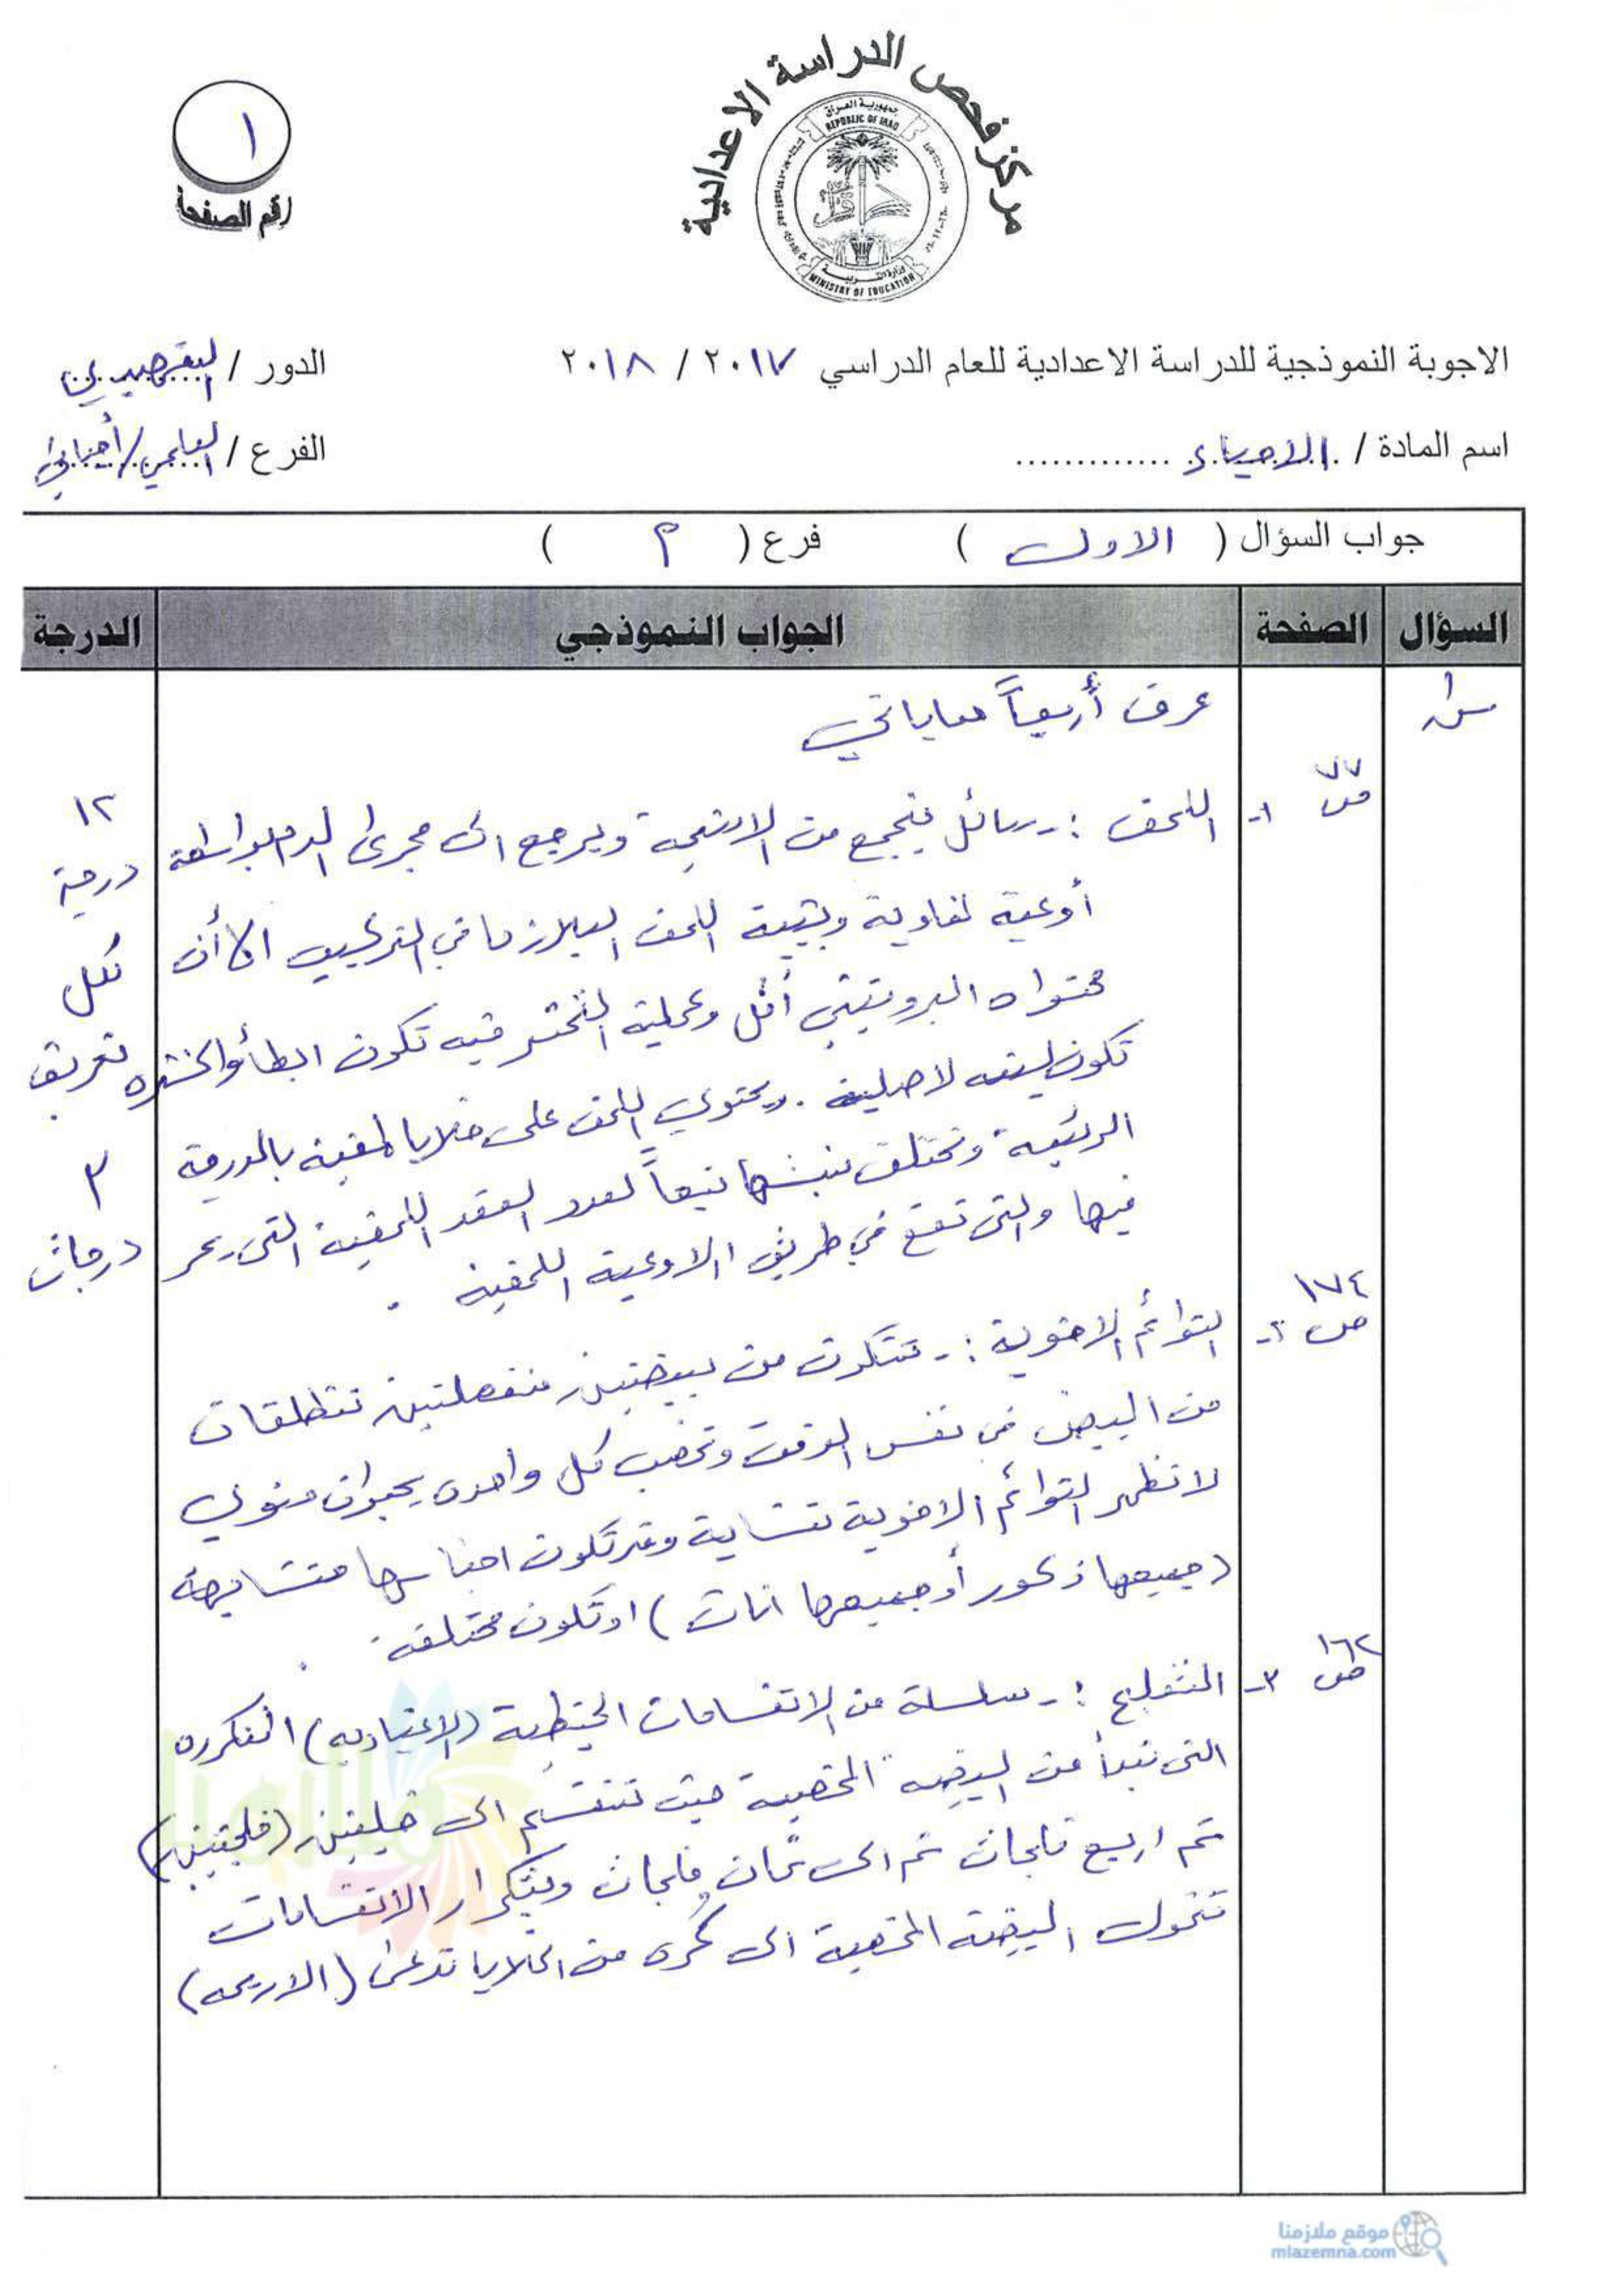 مركز فحص الدراسة الاعدادية
جمهورية العراق
REPUBLIC OF IRAQ
وزارة التربية
MINISTRY OF EDUCATION
١
رقم الصفحة
الاجوبة النموذجية للدراسة الاعدادية للعام الدراسي ٢٠١٧ / ٢٠١٨
الدور / التمهيدي
اسم المادة / الاحياء
الفرع / العلمي/أحيائي
جواب السؤال ( الاول ) فرع ( ٩ )
السؤال الصفحة الجواب النموذجي الدرجة
س١ عرف أربعاً مما ياتي
ص ٧٧ ١- اللمف :- سائل يتجمع من الانسجة ويرجع الى مجرى الدم بواسطة
أوعية لمفاوية ويشبه اللمف البلازما في التركيب الا أن
محتواه البروتيني أقل وعملية التخثر فيه تكون ابطأ والخثره
تكون لينه لا صلبة . ويحتوي اللمف على خلايا لمفية بالدرجة
الرئيسة وتختلف نسبتها تبعاً لعدد العقد اللمفية التي يمر
فيها والتي تقع في طريق الاوعية اللمفية .
١٢
درجة
لكل
تعريف
٣
درجات
ص ١٧٤ ٢- التوائم الاخوية :- تتكون من بيضتين منفصلتين تنطلقان
من المبيض في نفس الوقت وتخصب كل واحدة بحيوان منوي
لا تظهر التوائم الاخوية تشابه وقد تكون اجناسها متشابهة
(جميعها ذكور أو جميعها اناث ) او تكون مختلفة .
ص ١٦٢ ٣- التفلج :- سلسلة من الانقسامات الخيطية (الاعتيادية) المتكررة
التي تبدأ من البيضه المخصبة حيث تنقسم الى خليتين (فلجتين)
ثم اربع فلجات ثم الى ثمان فلجات وبتكرار الانقسامات
تتحول البيضة المخصبة الى كرة من الخلايا تدعى (الاريمة)
ملازمنا
موقع ملازمنا
mlazemna.com